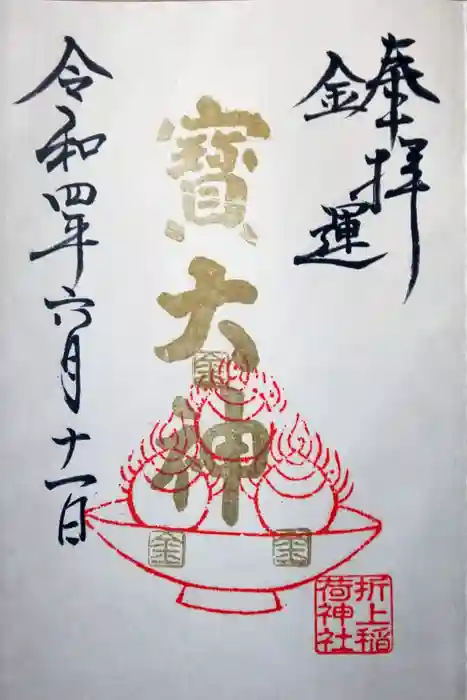 奉拝
金運
寳大神
金
金
金
令和四年六月十一日
折上稲
荷神社